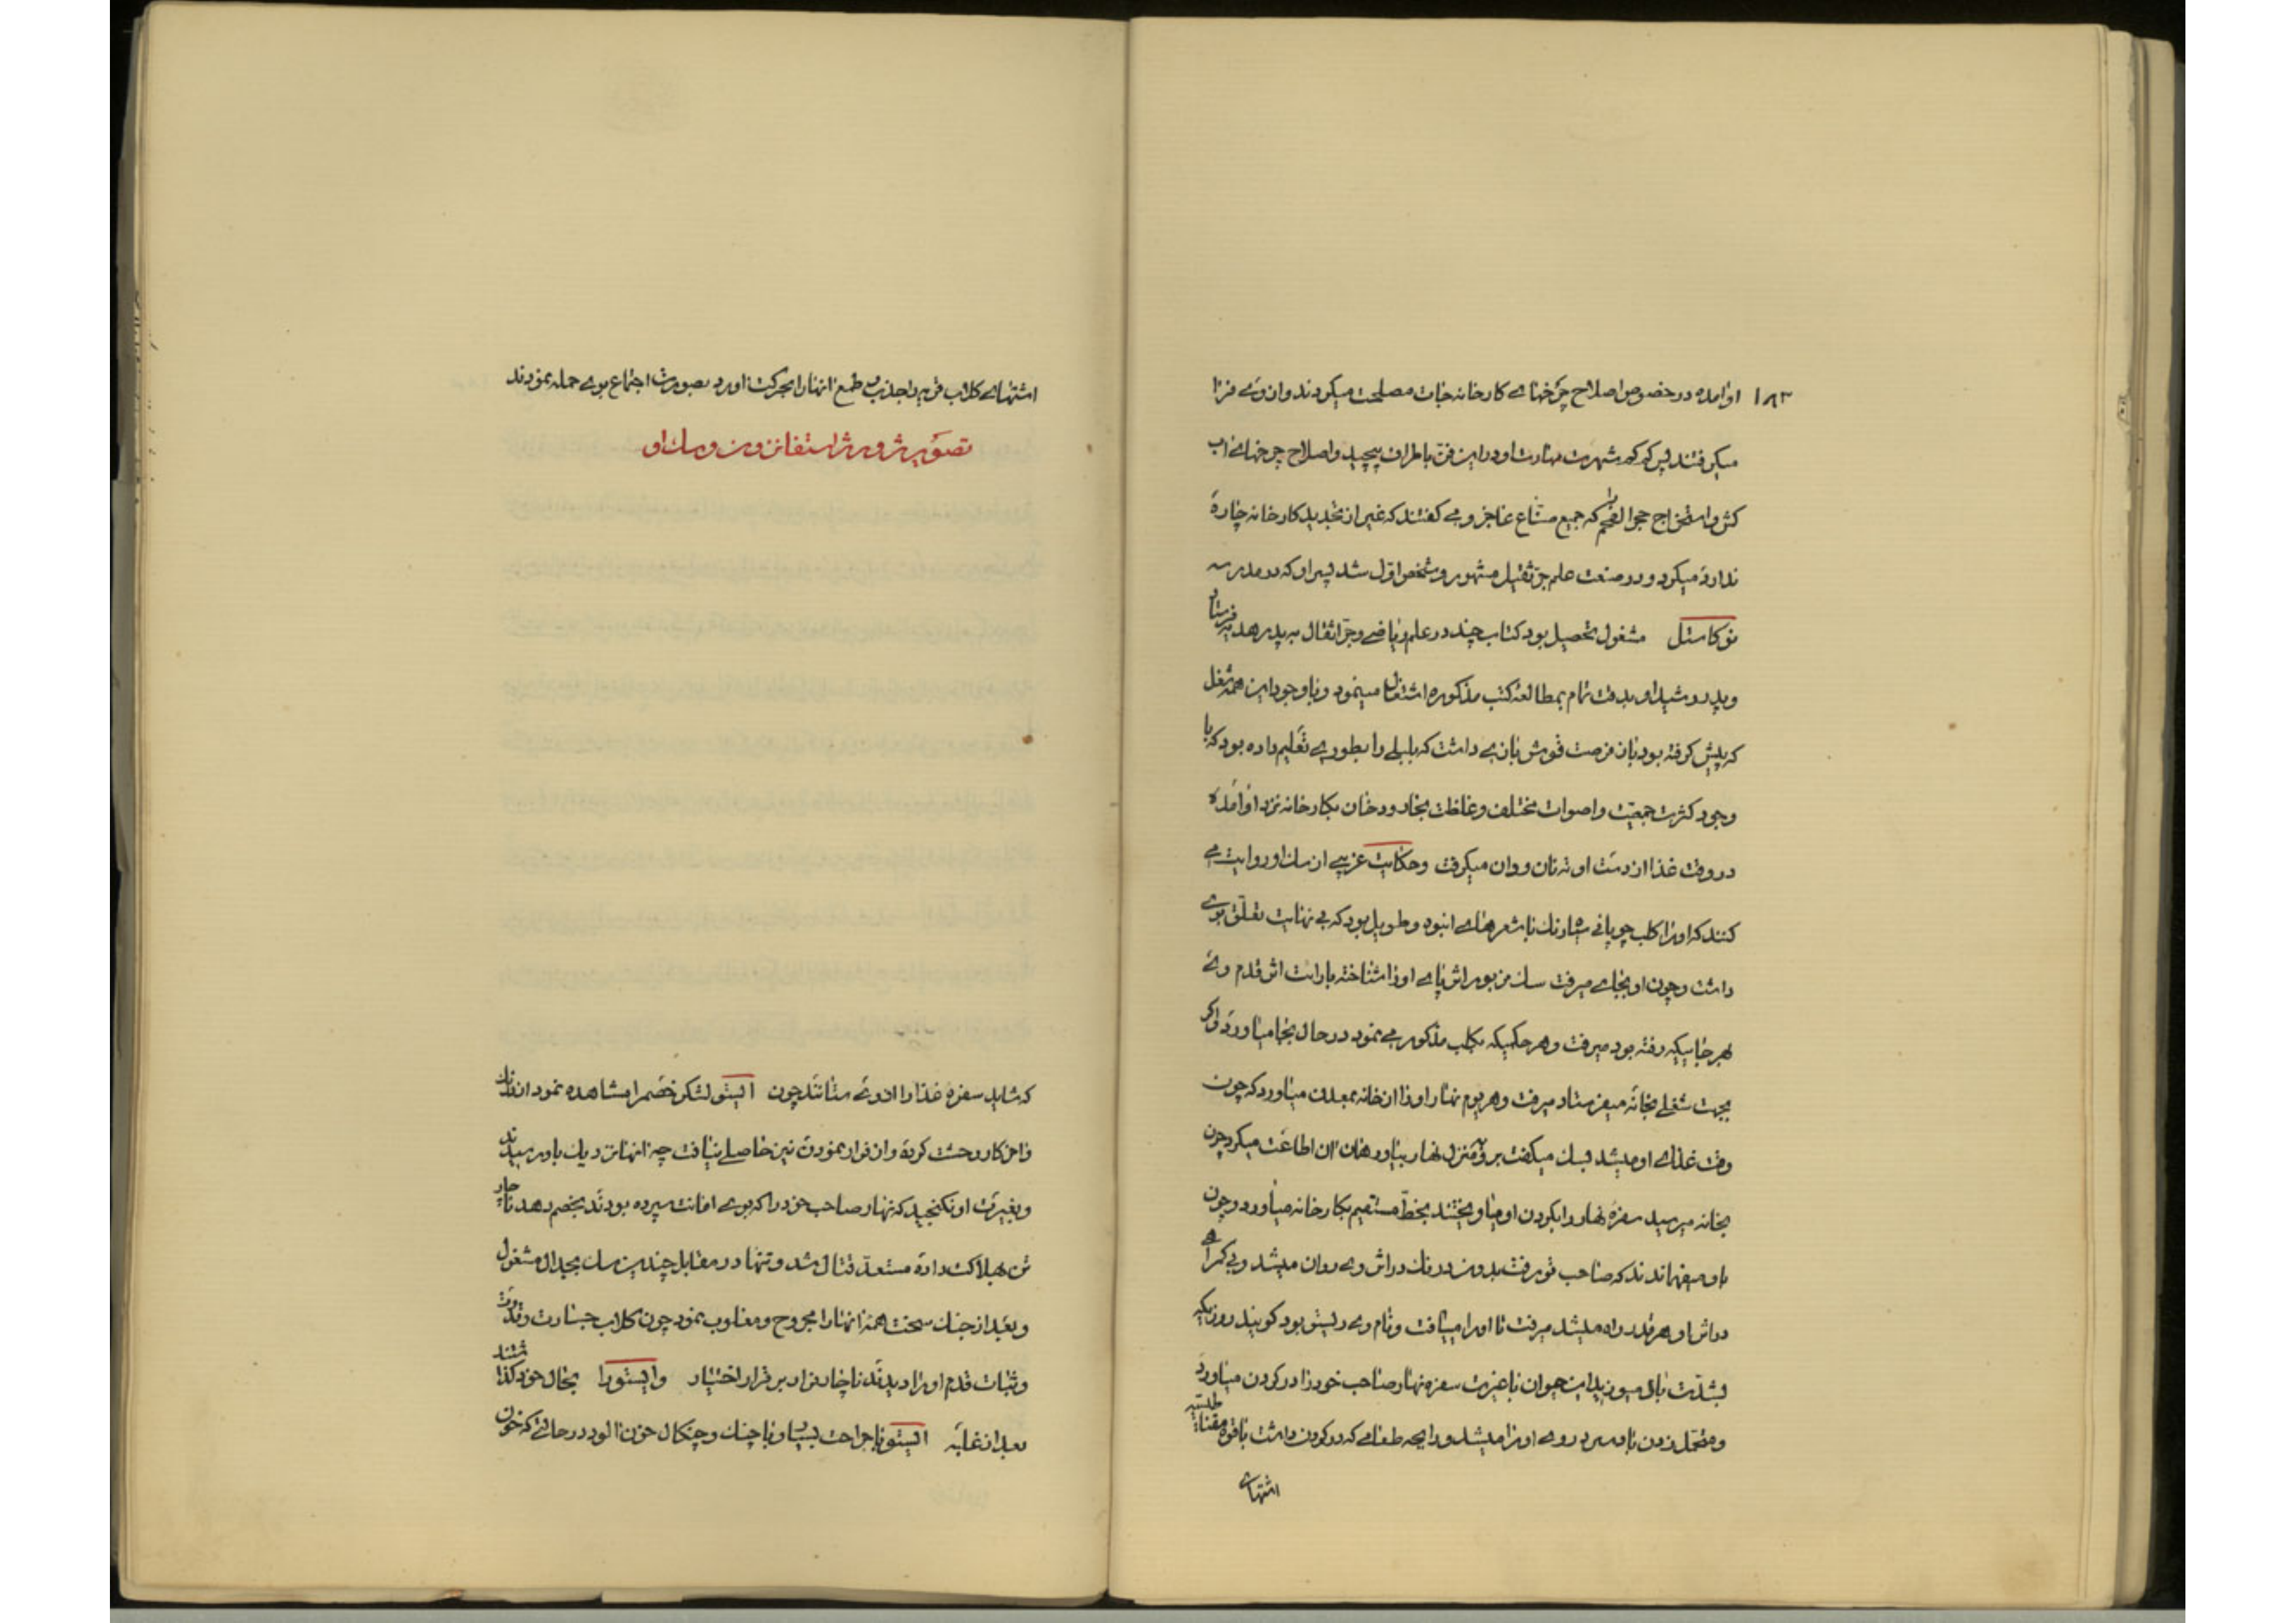 ۱۸۳
او آمده در خصوص اصلاح چرخهای کارخانه‌جات مصلحت میکردند و از وی فرا
میکرفتند پس کم کم شهرت مهارت او در این فن باطراف پیچید و اصلاح چرخهای آب
کش و استخراج حجر الفحم که جمیع صناع عاجز و می کفتند که غیر از تجدید کارخانه چارهٔ
ندارد میکرد و در صنعت علم جر ثقیل مشهور و شخص اول شد پسر او که در مدرسه
نوکاستل مشغول تحصیل بود کتاب چند در علم ریاضی و جر اثقال به پدر هدیه فرستاد
و پدر رشید او بدقت تمام بمطالعه کتب مذکوره اشتغال مینمود و با وجود این همه شغل
که پیش کرفته بود باز فرصت قوش بازی داشت که بلبلی را بطوری تعلیم داده بود که با
وجود کثرت جمعیت و اصوات مختلف و غلظت بخار و دخان بکارخانه نزد او آمده
در وقت غذا از دست او ته نان و وان میکرفت و حکایت غریبی از سک او روایت می
کنند که او را کلب چوپانی با شعرهای انبوه و طویل بود که بی نهایت تعلق بوی
داشت و چون او بجای میرفت سک مزبور اثر پای او را شناخته باراست اثر قدم وی
بهر جاییکه رفته بود میرفت و هر حکمیکه بکلب مذکور می نمود در حال بجا میاورد و اکر
بجهت شغلی بخانه میفرستاد میرفت و هر یوم نهار او را از خانه بمعدن میاورد که چون
وقت غذای او میشد بسک میکفت برو بمنزل نهار بیاور همان آن اطاعت میکرد چون
بخانه میرسید سفرهٔ نهار را بکردن او میاویختند بخط مستقیم بکارخانه میاورد و چون
باو میفهماندند که صاحب تو رفت بدون درنک در اثر وی روان میشد و بی کمراهی
در اثر او هر قدر راه میشد میرفت تا او را مییافت و نام وی رلیستو بود کویند روزیکه
بشدت باد میوزید این حیوان با غیرت سفره نهار صاحب خود را در کردن میاورد
و متحمل زدن باد سرد روی او را میشد و رایحه طعامی که در کردن داشت با قوه مقناطیسیه
اشتهای
اشتهای کلاب قریه را جذب و طمع آنها را بحرکت آورد بصورت اجتماع بوی حمله نمودند
تصویر ژورژ استفانزون و سک او
که شاید سفره غذا را از وی ستانند چون الیستو لشکر خصم را مشاهده نمود از درنک
و وحشت کرده و از فرار نمودن نیز حاصلی نیافت چه آنها نزدیک باو رسیدند
و بغیرت او نکنجید که نهار صاحب خود را که بوی امانت سپرده بودند بخصم دهد ناچار
تن بهلاکت داده مستعد قتال شد و تنها در مقابل چندین سک بجدال مشغول
و بعد از جنک سخت همه آنها را مجروح و مغلوب نمود چون کلاب جسارت و قدرت
و ثبات قدم او را دیدند ناچار قرار بر فرار اختیار و الیستو را بحال خود کذاشتند
بعد از غلبه الیستو با جراحت بسیار و با چنک و چنکال خون آلود در حالتی که خون